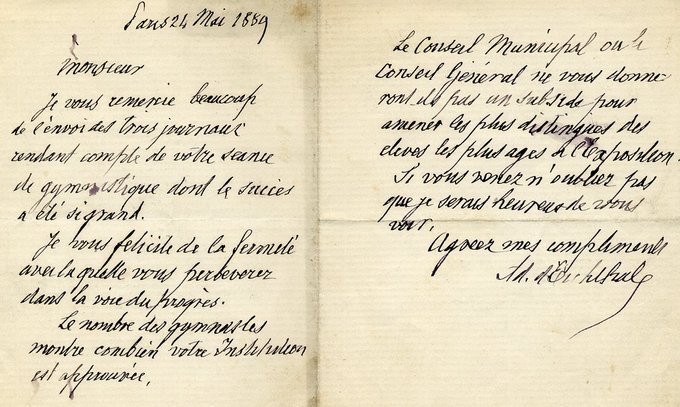 Paris 24 Mai 1889
Monsieur
Je vous remercie beaucoup
de l'envoi des trois journaux
rendant compte de votre seance
de gymnastique dont le succes
a été si grand.
Je vous felicite de la fermeté
avec laquelle vous perseverez
dans la voie du progrès.
Le nombre des gymnastes
montre combien votre Institution
est approuvée.
Le Conseil Municipal ou le
Conseil Général ne vous donne-
ront ils pas un subside pour
amener les plus distingues des
eleves les plus ages à l'Exposition.
Si vous venez n'oubliez pas
que je serais heureux de vous
voir.
Agreez mes compliments
Ad. d'Eichthal